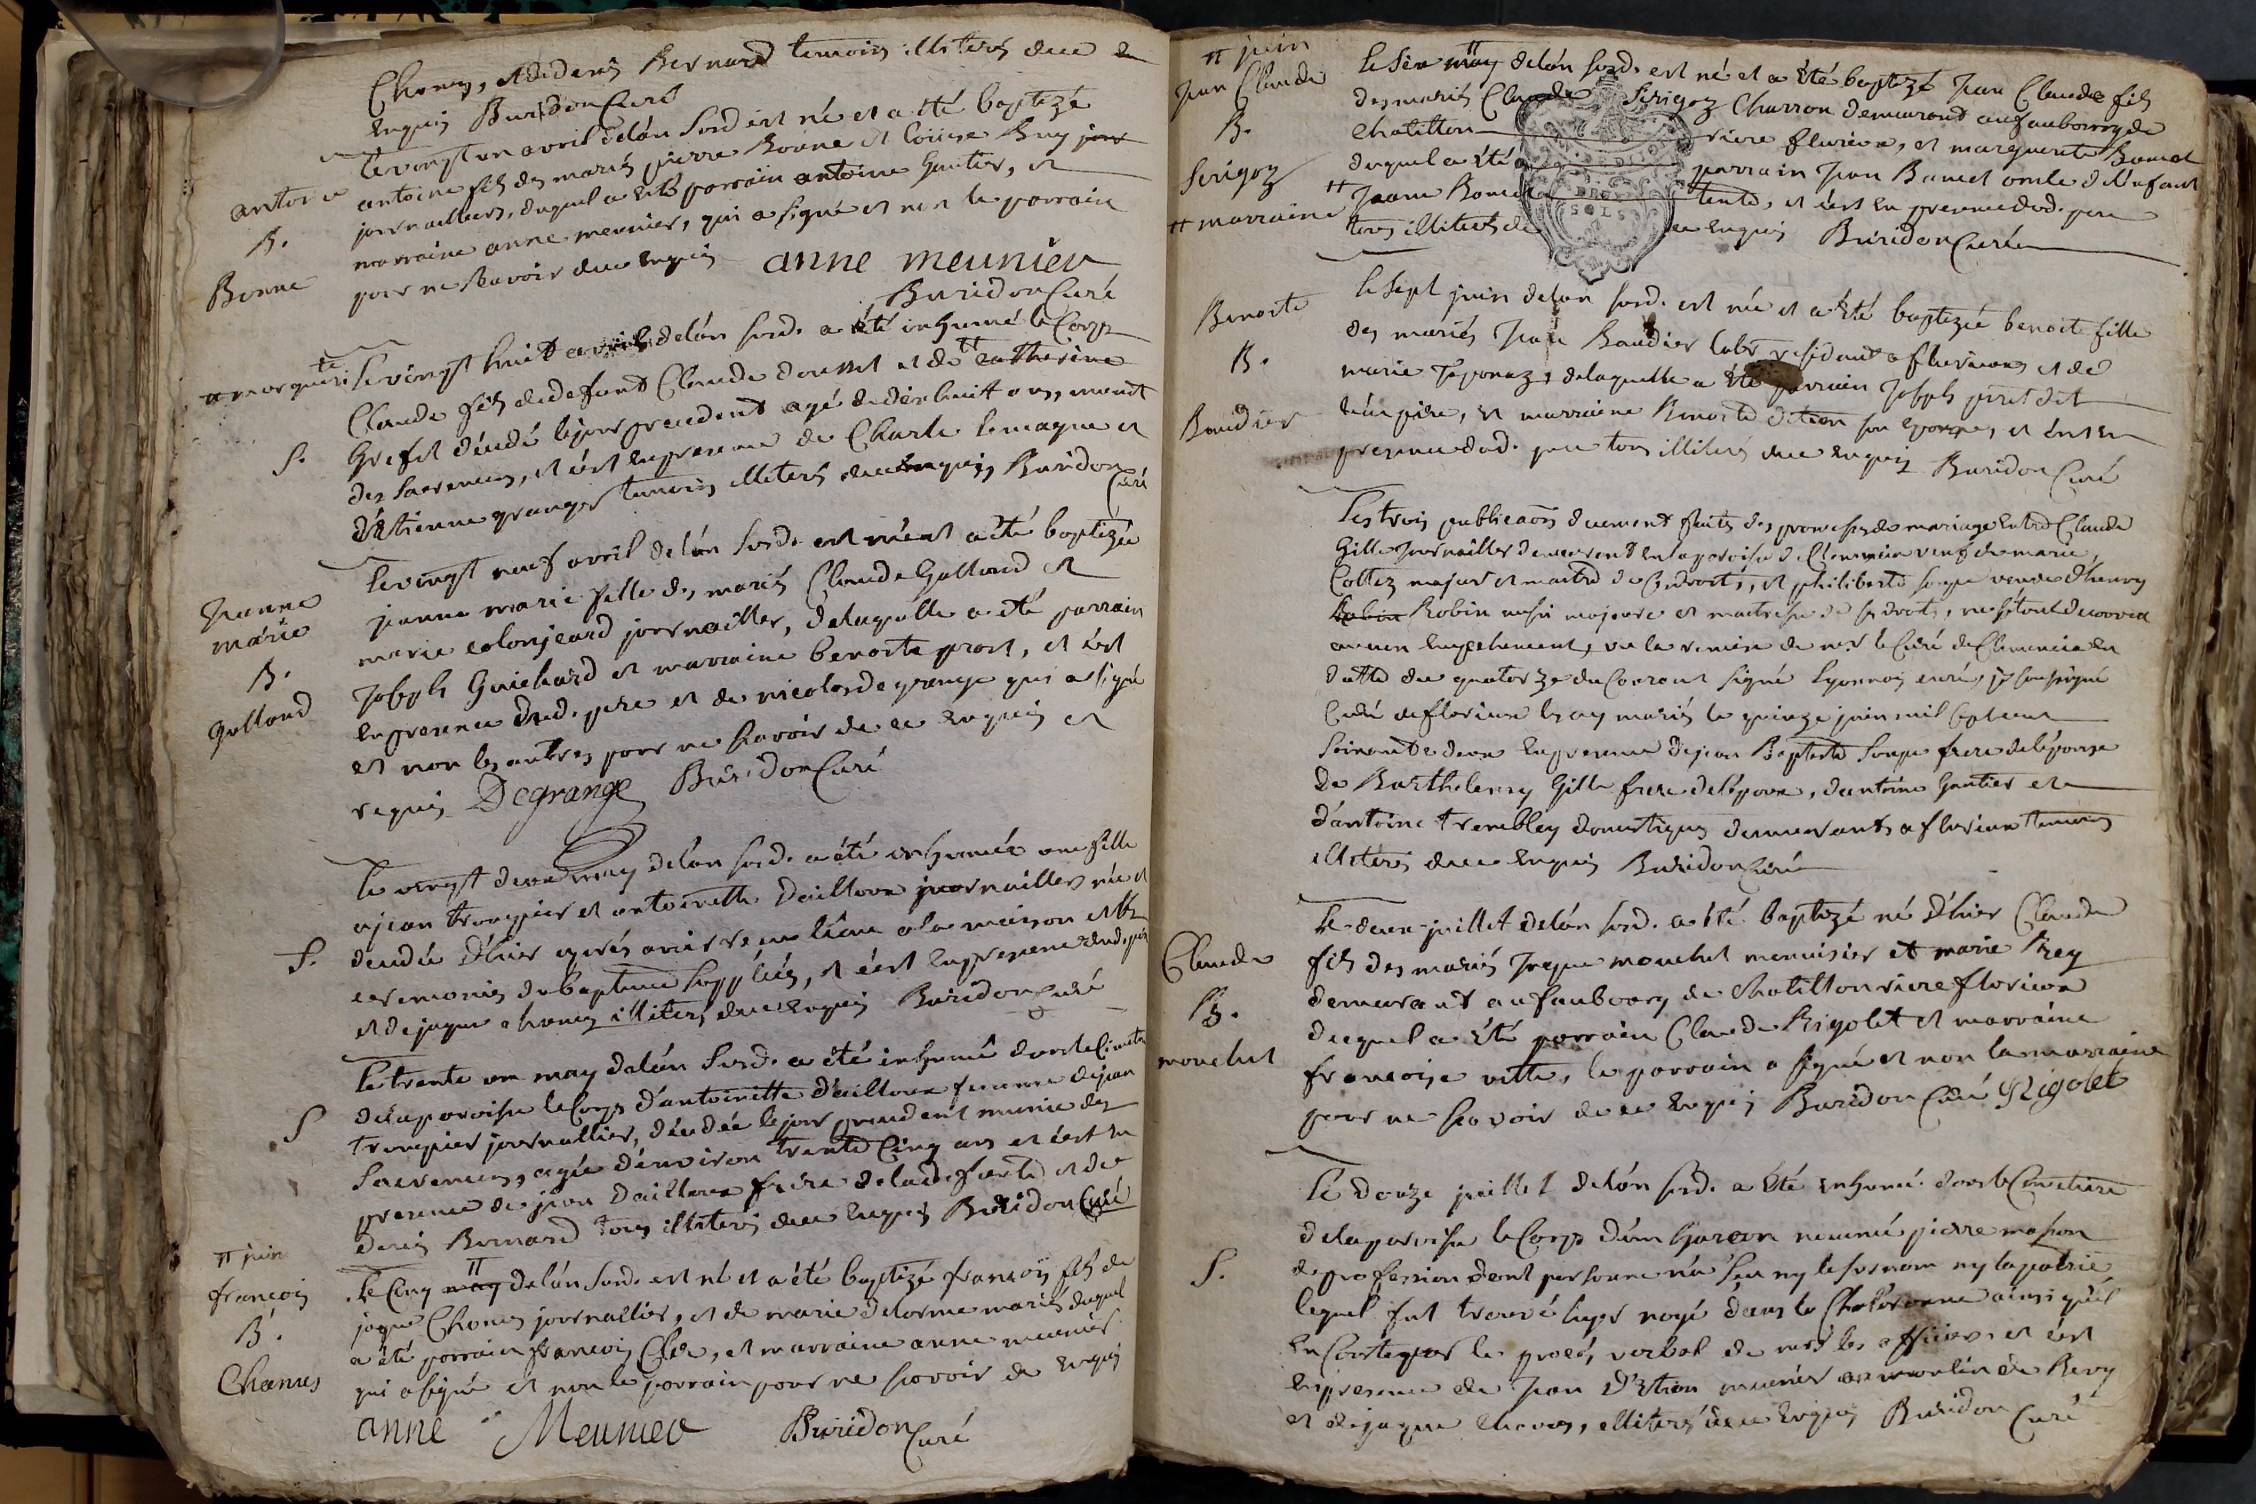 Chanes, et de denis Bernard temoins illiterés de ce
enquis Buridon Curé
antoine
B.
Bonne
Le vingt un avril de l'án susd. est né et a été baptizé
antoine fils des mariés pierre Bonne et Loüise Buy
journalliers, duquel a été parrain antoine Gautier, et
marraine anne meunier, qui a signé et non le parrain
pour ne sçavoir de ce enquis anne meunier
Buridon Curé
# marguerite
S.
Le vingt huit avril de l'án susd. a été inhumé le Corps
Claude fils de defunt Claude Dousset et de # catherine
Grefet décédé le jour precedent agé de dix huit ans, munit
des Sacremens, et c'est en presence de Charle lemagne et
d'étienne granger temoins illiterés de ce enquis Buridon
Curé
Jeanne
marie
B.
Galland
Le vingt neuf avril de l'án susd. est née et a été baptizée
jeanne marie fille des mariés Claude Galland et
marie colonjeard journallier, de laquelle a été parrain
Joseph Guichard et marraine benoite prost, et c'est
en presence dud. pere et de nicolas de grange qui a signé
et non les autres pour ne sçavoir de ce enquis et
requis Degrange Buridon Curé
S.
Le vingt deux may de l'án susd. a été inhumée une fille
a jean trompier et antoinette Dailloux journallier née et
décédée d'hier aprés avoir reçu l'eau a la maison et les
ceremonies du baptême suppléés, et c'est en presence dud. pere
et de jaque chanes illiterés de ce enquis Buridon Curé
S
Le trente un may de l'án susd. a été inhumé dans le Cimetiere
de la paroisse le Corps d'antoinette d'ailloux femme de jean
trompier journallier, décédée le jour precedent munie des
Sacremens, agée d'environ trente Cinq ans et c'est en
presence de jean Dailloux frére de la defunte et de
denis Bernard tous illiterés de ce enquis Buridon Curé
# juin
francois
B.
Chanes
Le Cinq may # de l'án susd. est né et a été baptizé francois fils de
jaque Chanes journallier, et de marie delorme mariés duquel
a été parrain francois Cler, et marraine anne meunier
qui a signé et non le parrain pour ne sçavoir de enquis
anne Meunier Buridon Curé
# juin
Jean Claude
B.
Serigoz
# marraine
Le Six may # de l'án susd. est né et a été baptizé Jean Claude fils
des mariés Claude Serigoz Charron demeurant au faubourg de
chatillon riere flurieux, et marguerite Bancet
duquel a été parrain Jean Bancet oncle de l'enfant
# Jeanne tante, et c'est en presence dud. pere
tous illiterés de ce enquis Buridon Curé
Benoite
B.
Baudier
Le sept juin de l'án susd. est née et a été baptizée benoite fille
des mariés Jean Baudier labr residant a flurieux et de
marie Teponaz, de laquelle a été parrain Joseph piret dit
l'empire, et marraine Benoite son epouse, et c'est en
presence dud. pere tous illiterés de ce enquis Buridon Curé
Les trois publicaons duement faites des promesses de mariage entre Claude
Gille Journallier demeurant en la paroisse de Clemencia veuf de marie
Cottez majeur et maitre de ses droits, et philiberte soupe veuve d'henry
Robin Robin aussi majeure et maitresse de ses droits, ne s'étant decouvert
aucun empechement, vu la remise de mr le Curé de Clemencia en
datte du quatorze du Courant signé Lyonnois curé, je soussigné
Curé de flurieux les ay mariés le quinze juin mil sept cent
Soixante deux en presence de jean Baptiste Soupe frere de l'épouse
De Barthelemy Gille frere de l'époux, d'antoine Gautier et
d'antoine trembley domestiques demeurants a flurieux temoins
illiterés de ce enquis Buridon Curé
Claude
B.
mouchet
Le deux juillet de l'án susd. a été baptizé né d'hier Claude
fils des mariés Jaque mouchet menuisier et marie Rey
demeurant au faubourg de Chatillon riere flurieux
duquel a été parrain Claude Rigolet et marraine
francoise vitte, le parrain a signé et non la marraine
pour ne sçavoir de ce enquis Buridon Curé Rigolet
S.
Le Douze juillet de l'án susd. a été inhumé dans le Cimetiere
de la paroisse le Corps d'un Garcon nommé pierre masson
de profession dont personne n'a sçu ny le surnom ny la patrie
lequel fut trouvé hyer noyé dans la Chalaronne ainsi qu'il
en Conste par le procés verbal de mrs les officiers et c'est
en presence de Jean D'Etion meunier au moulin de Bevy
et de jaque Chanes, illiterés de ce enquis Buridon Curé